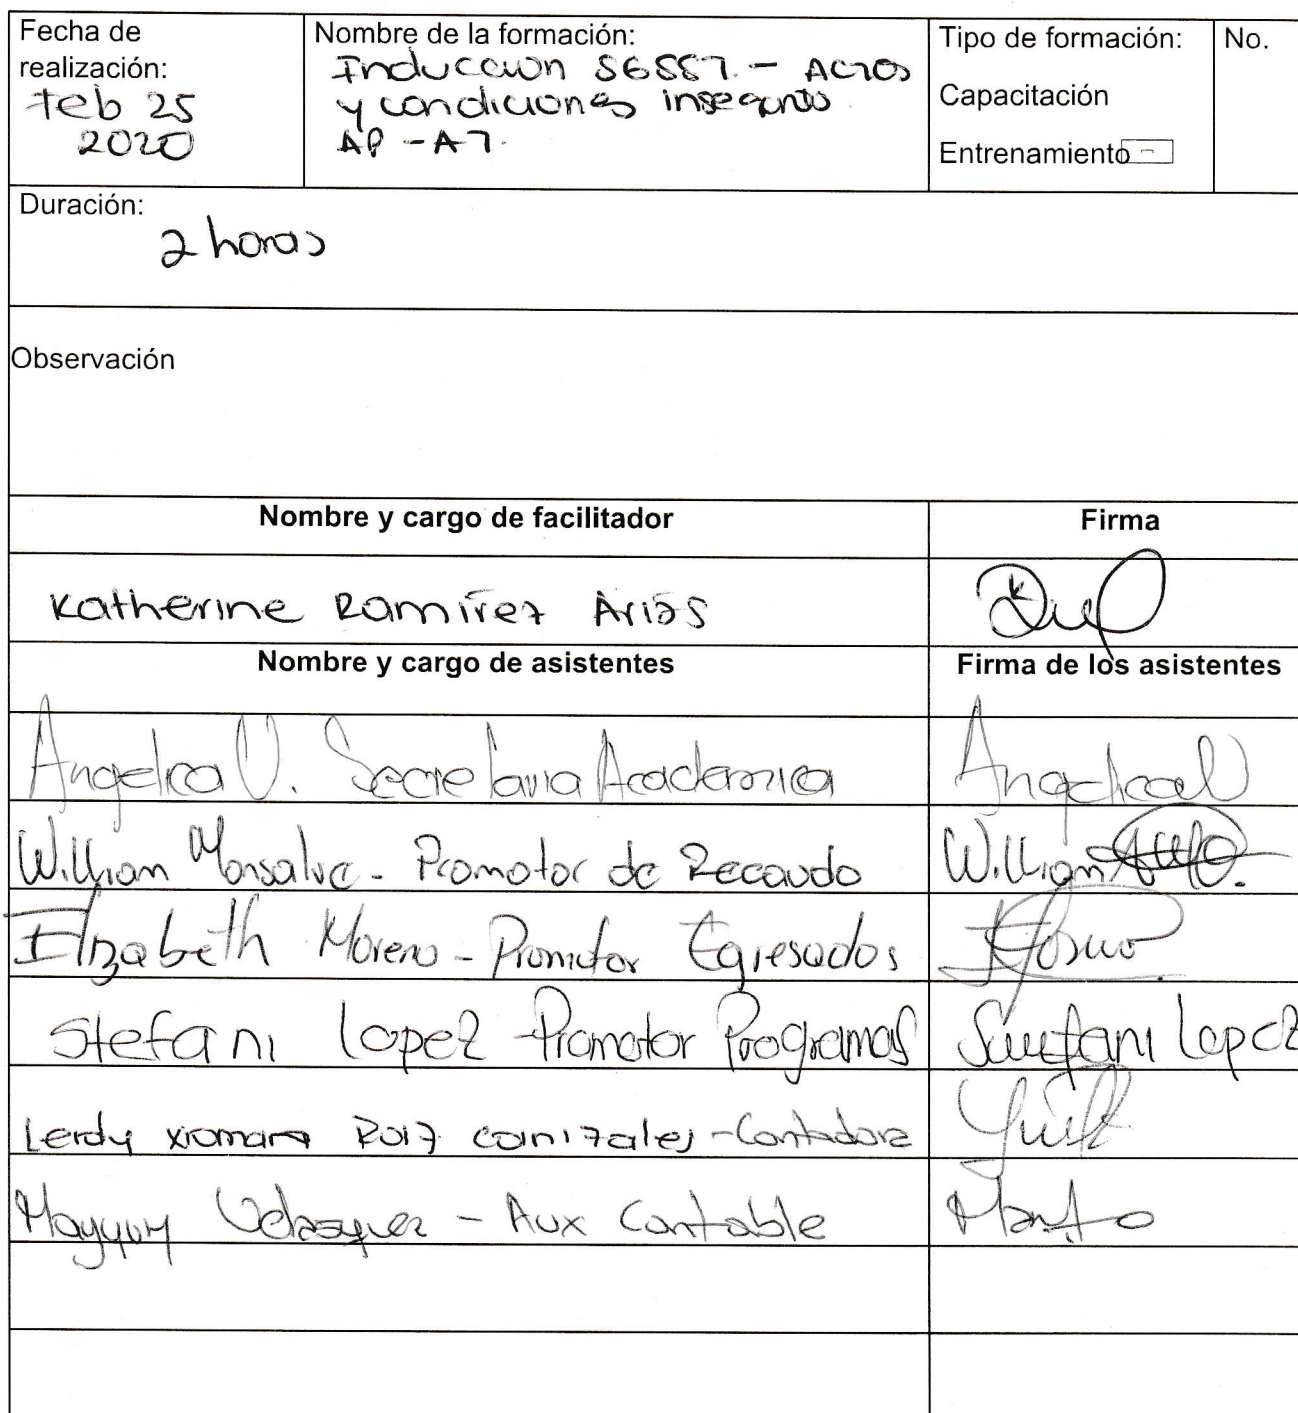 Fecha de realización:
feb 25
2020
Nombre de la formación:
Inducción SGSST. - Actos
y condiciones inseguras
AP - AT.
Tipo de formación:
Capacitación
Entrenamiento
No.
Duración:
2 horas
Observación
Nombre y cargo de facilitador
Firma
Katherine Ramirez Arias
Nombre y cargo de asistentes
Firma de los asistentes
Angelica V. Secretaria Academica
Angelica V
William Monsalve - Promotor de Recaudo
William
Elizabeth Moreno - Promotor Egresados
Stefani Lopez - Promotor Programas
Stefani Lopez
Leidy xiomara Roiz canizales - Contadora
Velasquez - Aux Contable